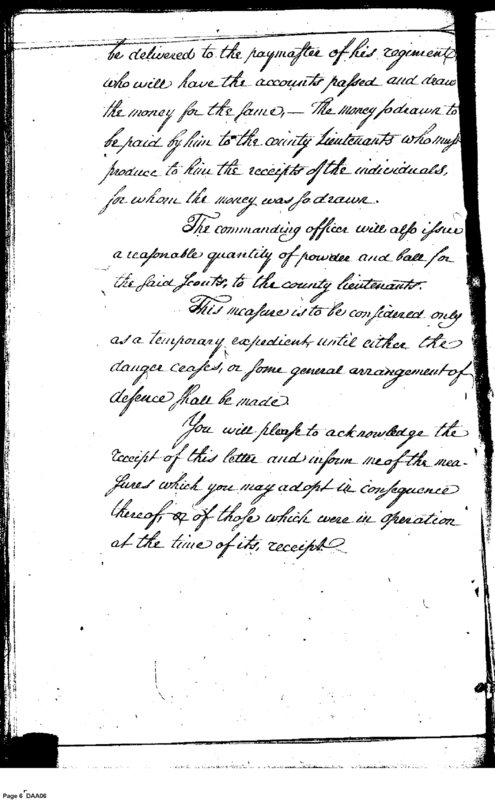 be delivered to the paymaſter of his regiment
who will have the accounts paſsed and draw
the money for the ſame,— The money ſo drawn to
be paid by him to the county Lieutenants who muſt
produce to him the receipts of the individuals,
for whom the money was ſo drawn.
The commanding officer will alſo iſsue
a reaſonable quantity of powder and ball for
the ſaid Scouts, to the county lieutenants.
This meaſure is to be conſidered only
as a temporary expedient, until either the
danger ceaſes, or ſome general arrangement of
defence ſhall be made
You will pleaſe to acknowledge the
receipt of this letter and inform me of the mea-
ſures which you may adopt in conſequence
thereof, or of thoſe which were in operation
at the time of its, receipt.
Page 6 DAA06